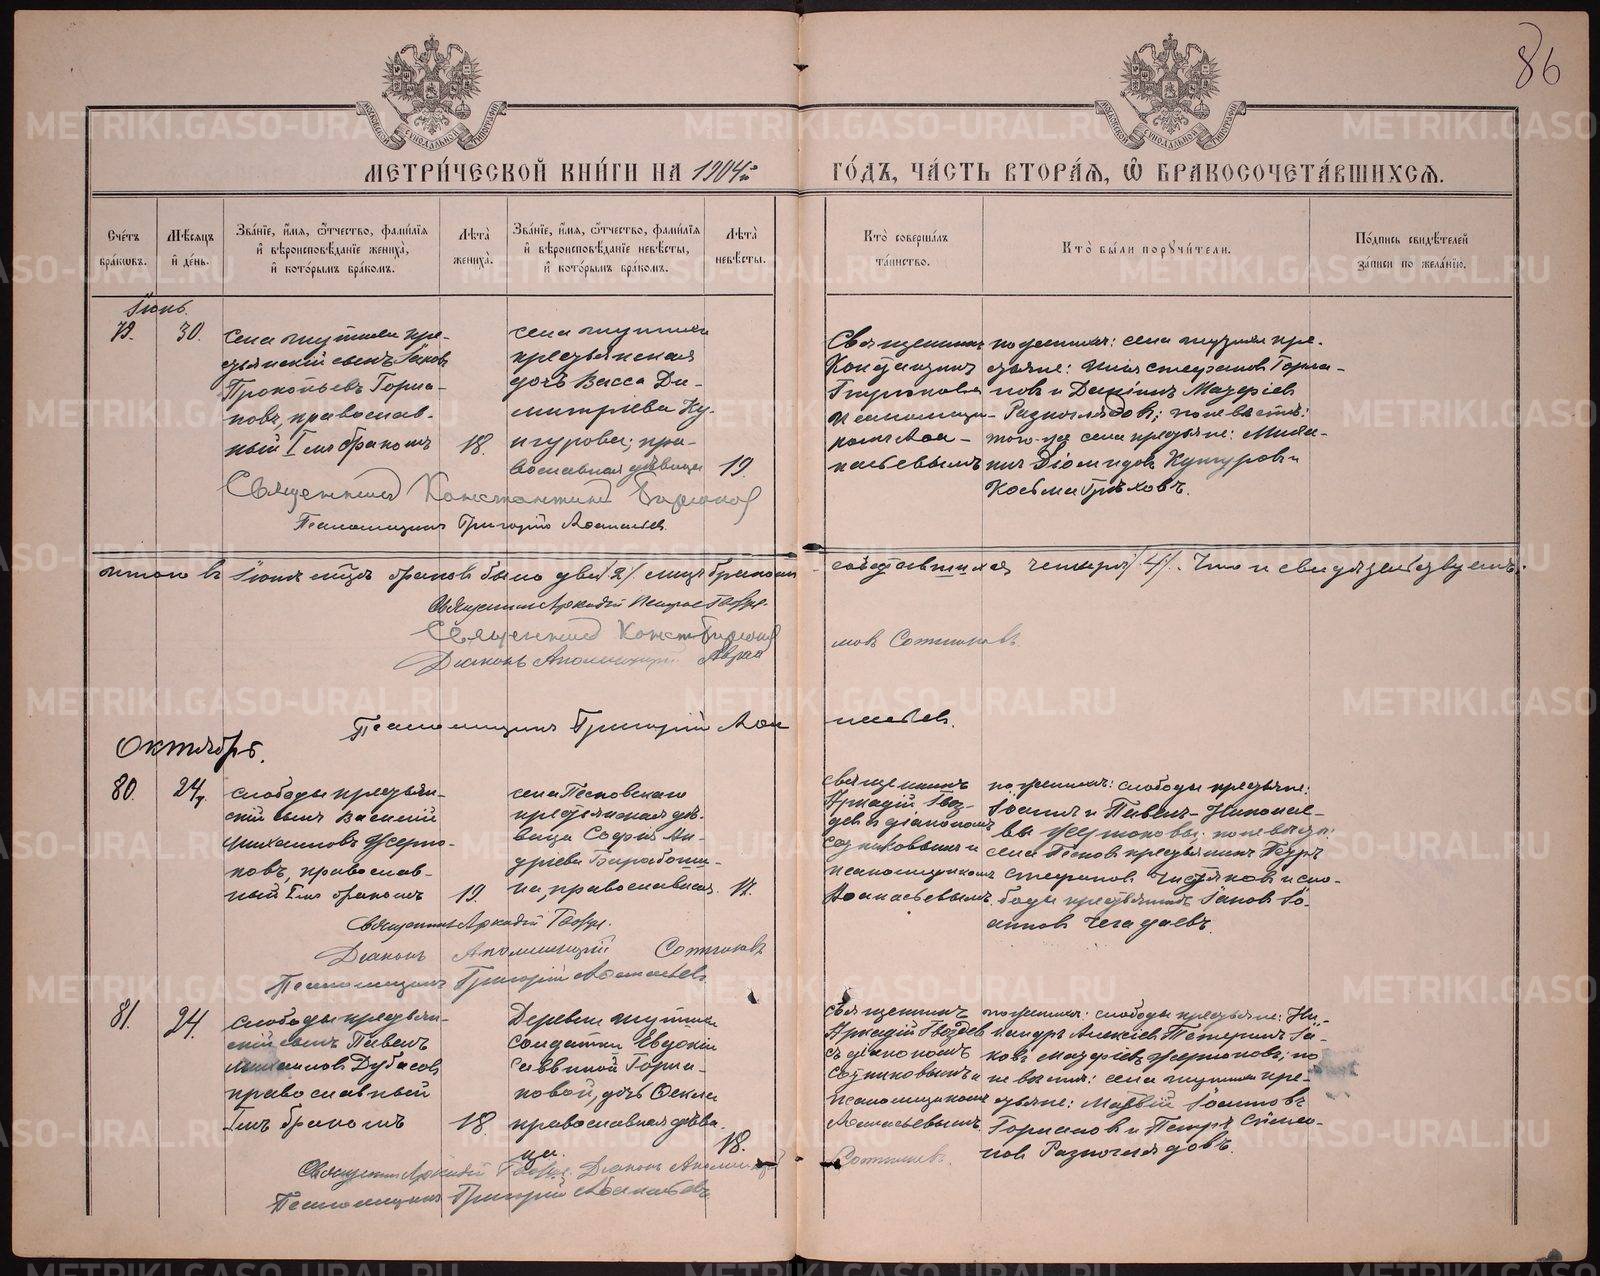 86
МЕТРИ́ЧЕСКОЙ КНИ́ГИ НА 1904й ГО́ДЪ, ЧА́СТЬ ВТОРА́Я, Ѽ БРАКОСОЧЕТА́ВШИХСѦ.
Сче́тъ бра́кѡвъ.
Мѣ́сяцъ и҆ де́нь.
Зва́нїе, и҆́мя, ѻ҆́тчество, фами́лїя
и҆ вѣроисповѣ́данїе жениха̀,
и҆ кото́рымъ бра́комъ.
Лѣта̀ жениха̀.
Зва́нїе, и҆́мя, ѻ҆́тчество, фами́лїя
и҆ вѣроисповѣ́данїе невѣ́сты,
и҆ кото́рымъ бра́комъ.
Лѣта̀ невѣ́сты.
Кто̀ соверша́лъ та́инство.
Кто̀ бы́ли порꙋчи́тели.
По́дпись свидѣ́телей за́писи по жела́нїю.
Іюнь.
79. 30.
кре-
стьянскій сынъ Іаковъ
Прокопьевъ Горма-
новъ, православ-
ный I мъ бракомъ
18.
крестьянская
дочь Васса Ди-
митріева Ку-
нгурова; пра-
вославная дѣвица
19.
Священникъ
Константинъ
Бирюковъ
псаломщи-
комъ Аѳа-
насьевымъ
по женихѣ: села кре-
стьяне: Стефановъ Горма-
новъ и Матѳіевъ
Разноглядовъ; по невѣстѣ:
того-же села крестьяне:
Діомидовъ Кунгуровъ и
Косьма Грѣховъ.
Священникъ Константинъ Бирюковъ
Псаломщикъ Григорій Аѳанасьевъ.
Итого въ Іюнѣ м҃цѣ браковъ было два /2/ лицъ бракомъ сочетавшихся четыре /4/. Что и свидѣтельствуемъ:
Священникъ Аркадій Гвоздевъ.
Священникъ Конст. Бирюковъ
Діаконъ Аполлинарій Авраамовъ Сотниковъ
Псаломщикъ Григорій Аѳанасьевъ.
Октябрь.
80. 24.
слободы крестьян-
скій сынъ Василій
Михаиловъ
православ-
ный I мъ бракомъ
19.
села Песковскаго
крестьянская дѣ-
вица Софія Ан-
дреева
на, православная.
17.
священникъ
Аркадій Гвоз-
девъ съ діакономъ
Сотниковымъ и
псаломщикомъ
Аѳанасьевымъ.
по женихѣ: слободы крестьяне:
Іоаннъ и Павелъ Николае-
вы по невѣстѣ:
села Песковъ крестьянинъ Петръ
Стефановъ Чистяковъ и сло-
боды крестьянинъ Іаковъ Іо-
анновъ Чегадаевъ.
Священникъ Аркадій Гвоздевъ.
Діаконъ Аполлинарій Сотниковъ
Псаломщикъ Григорій Аѳанасьевъ
81. 24.
слободы крестьян-
скій сынъ Павелъ
Михаиловъ Дубасовъ
православный
I мъ бракомъ
18.
Деревни
солдатки Евдокіи
Саввиной Горма-
новой, дочь Ѳекла
православная дѣви-
ца.
18.
священникъ
Аркадій Гвоздевъ
съ діакономъ
Сотниковымъ и
псаломщикомъ
Аѳанасьевымъ.
по женихѣ: слободы крестьяне: Ни-
кандръ Алексіевъ Тетеринъ Іа-
ковъ Матѳіевъ по
невѣстѣ: села кре-
стьяне: Матвій Іоанновъ
Гормановъ и Петръ Симео-
новъ Разноглядовъ.
Священникъ Аркадій Гвоздевъ. Діаконъ Аполлинарій Сотниковъ.
Псаломщикъ Григорій Аѳанасьевъ.
METRIKI.GASO-URAL.RU